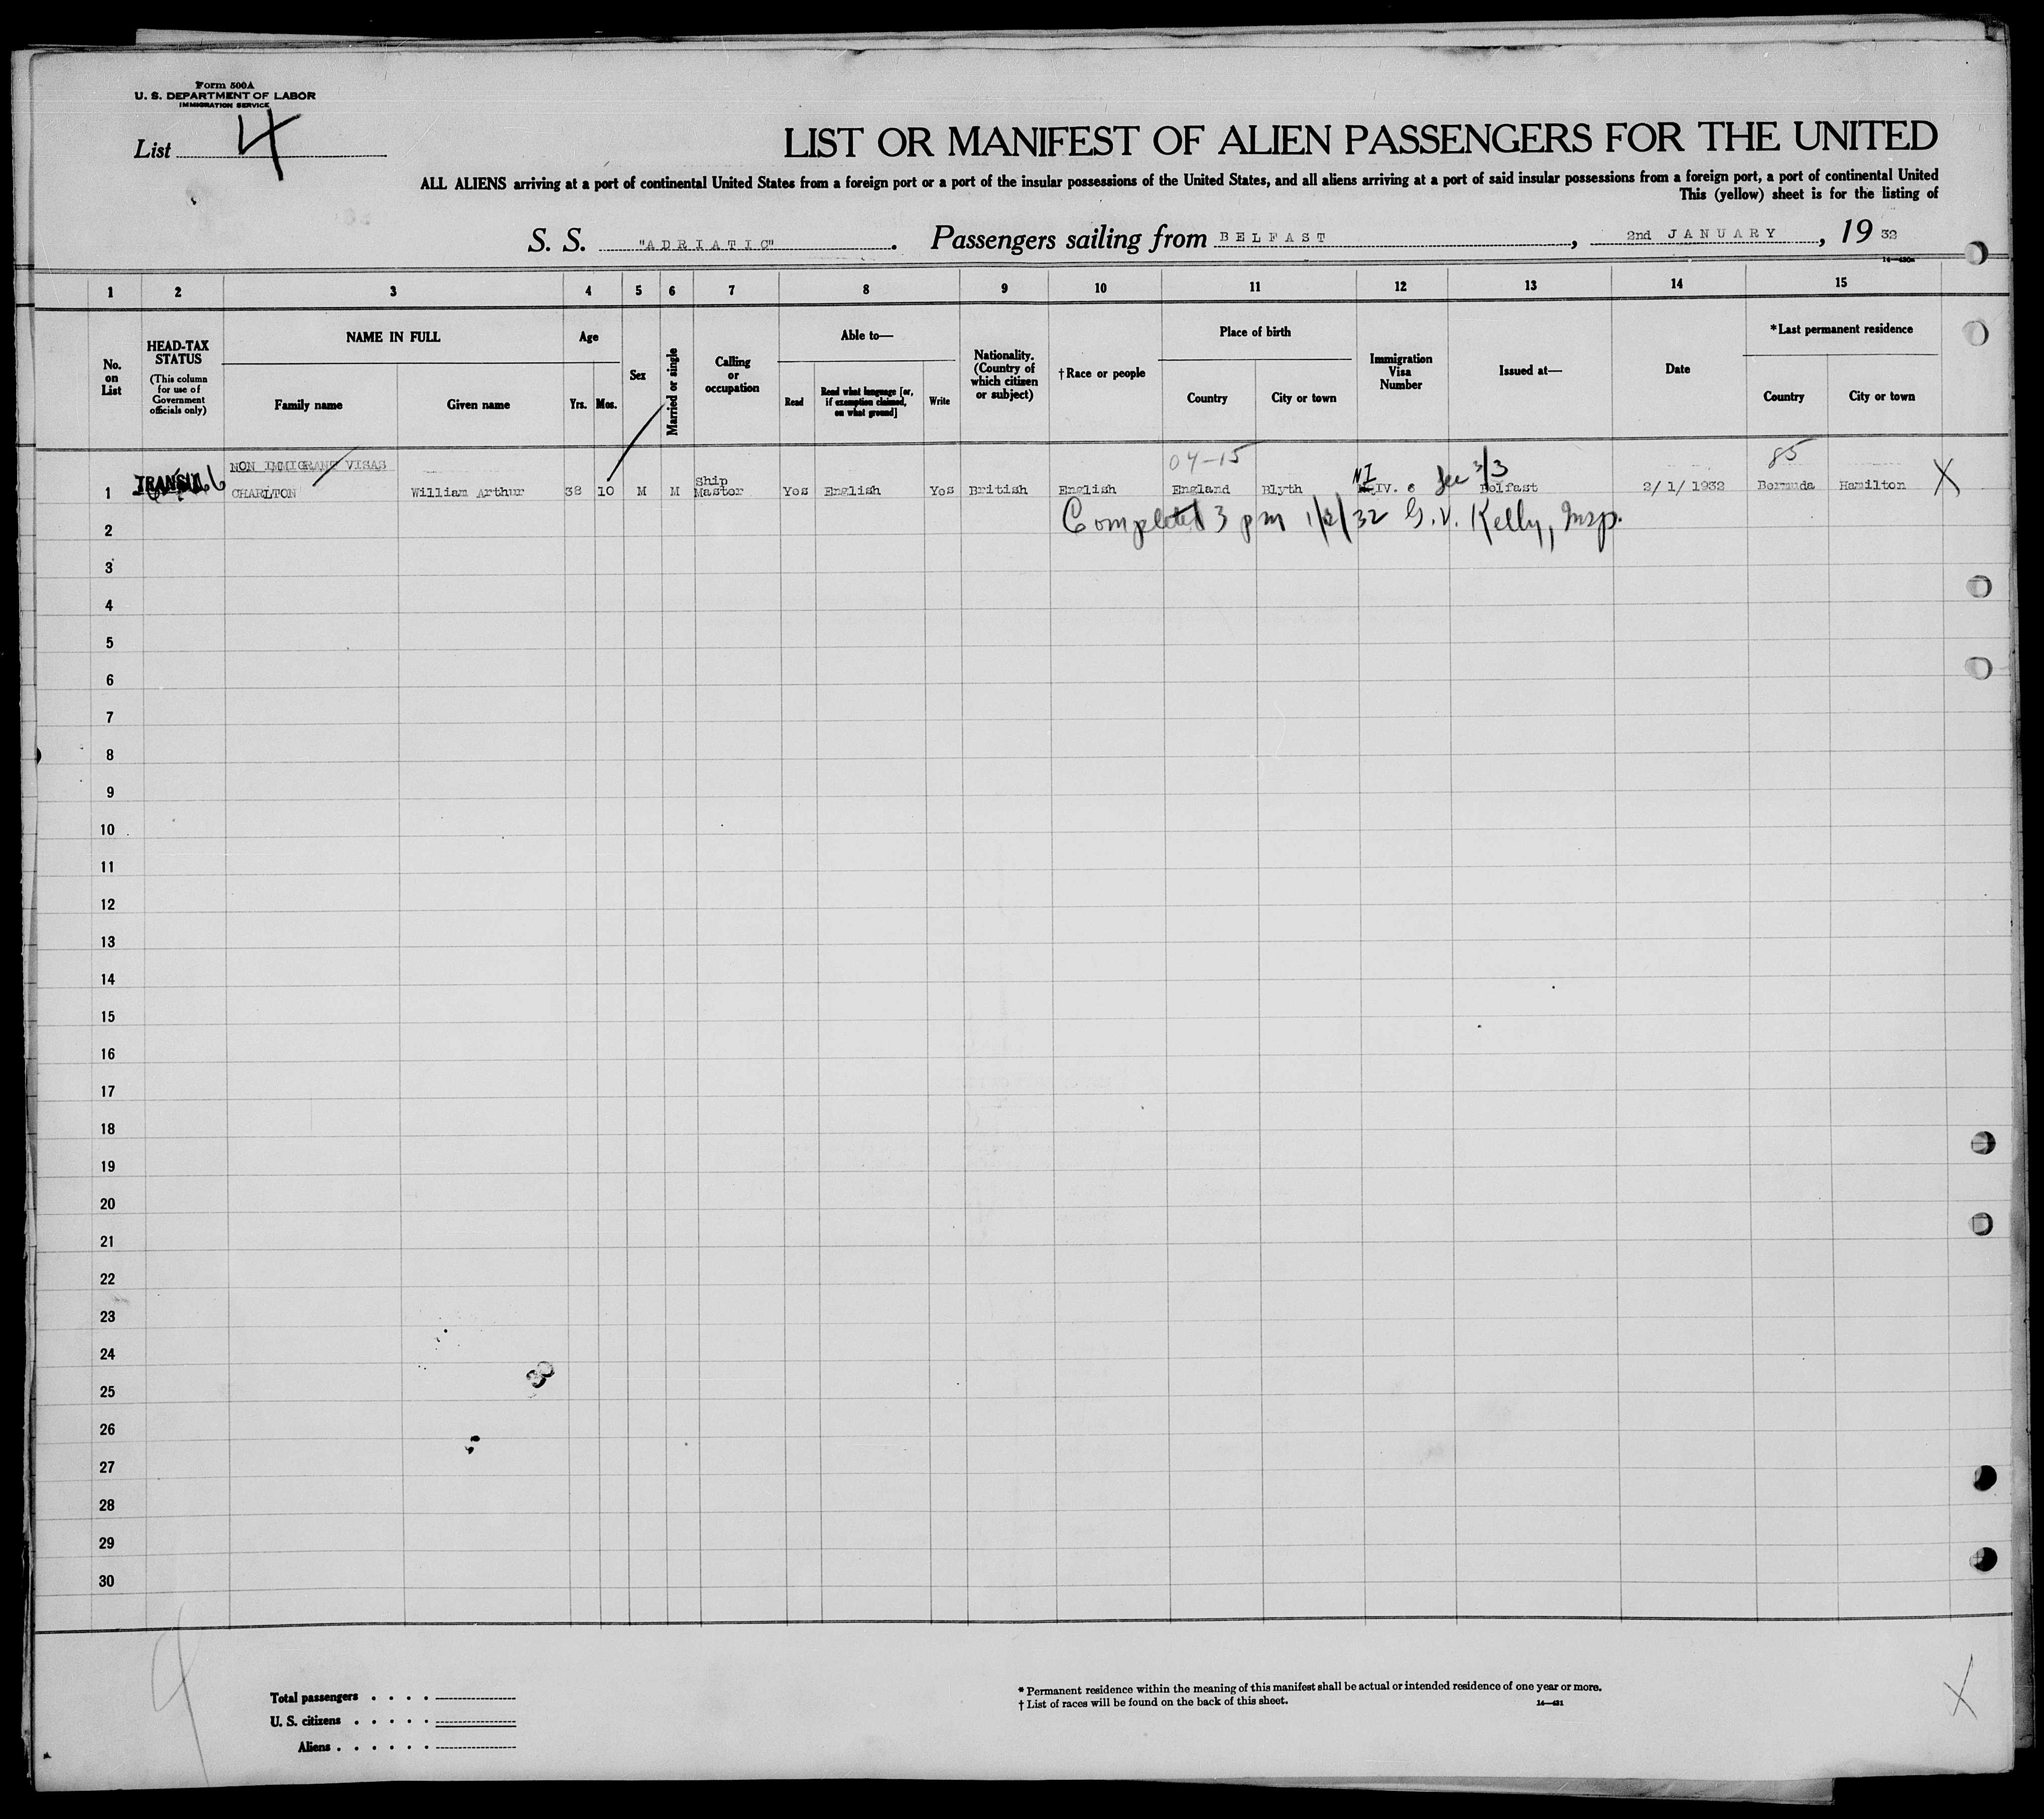 Form 500A
U. S. DEPARTMENT OF LABOR
IMMIGRATION SERVICE
List 4
LIST OR MANIFEST OF ALIEN PASSENGERS FOR THE UNITED
ALL ALIENS arriving at a port of continental United States from a foreign port or a port of the insular possessions of the United States, and all aliens arriving at a port of said insular possessions from a foreign port, a port of continental United
This (yellow) sheet is for the listing of
S. S. "ADRIATIC". Passengers sailing from BELFAST, 2nd JANUARY, 19 32
1 2 3 4 5 6 7 8 9 10 11 12 13 14 15
No. on List
HEAD-TAX STATUS
(This column for use of Government officials only)
NAME IN FULL
Family name Given name
Age
Yrs. Mos.
Sex
Married or single
Calling or occupation
Able to—
Read
Read what language [or, if exemption claimed, on what ground]
Write
Nationality. (Country of which citizen or subject)
†Race or people
Place of birth
Country City or town
Immigration Visa Number
Issued at—
Date
*Last permanent residence
Country City or town
NON IMMIGRANT VISAS
04-15 85
1 TRANSIT CHARLTON William Arthur 38 10 M M Ship Master Yes English Yes British English England Blyth NI IV. See 3/3 Belfast 2/1/1932 Bermuda Hamilton X
Completed 3 pm 1/2/32 G. V. Kelly, Insp.
2
3
4
5
6
7
8
9
10
11
12
13
14
15
16
17
18
19
20
21
22
23
24
25
26
27
28
29
30
Total passengers
U. S. citizens
Aliens
* Permanent residence within the meaning of this manifest shall be actual or intended residence of one year or more.
† List of races will be found on the back of this sheet.
14—431
4
X